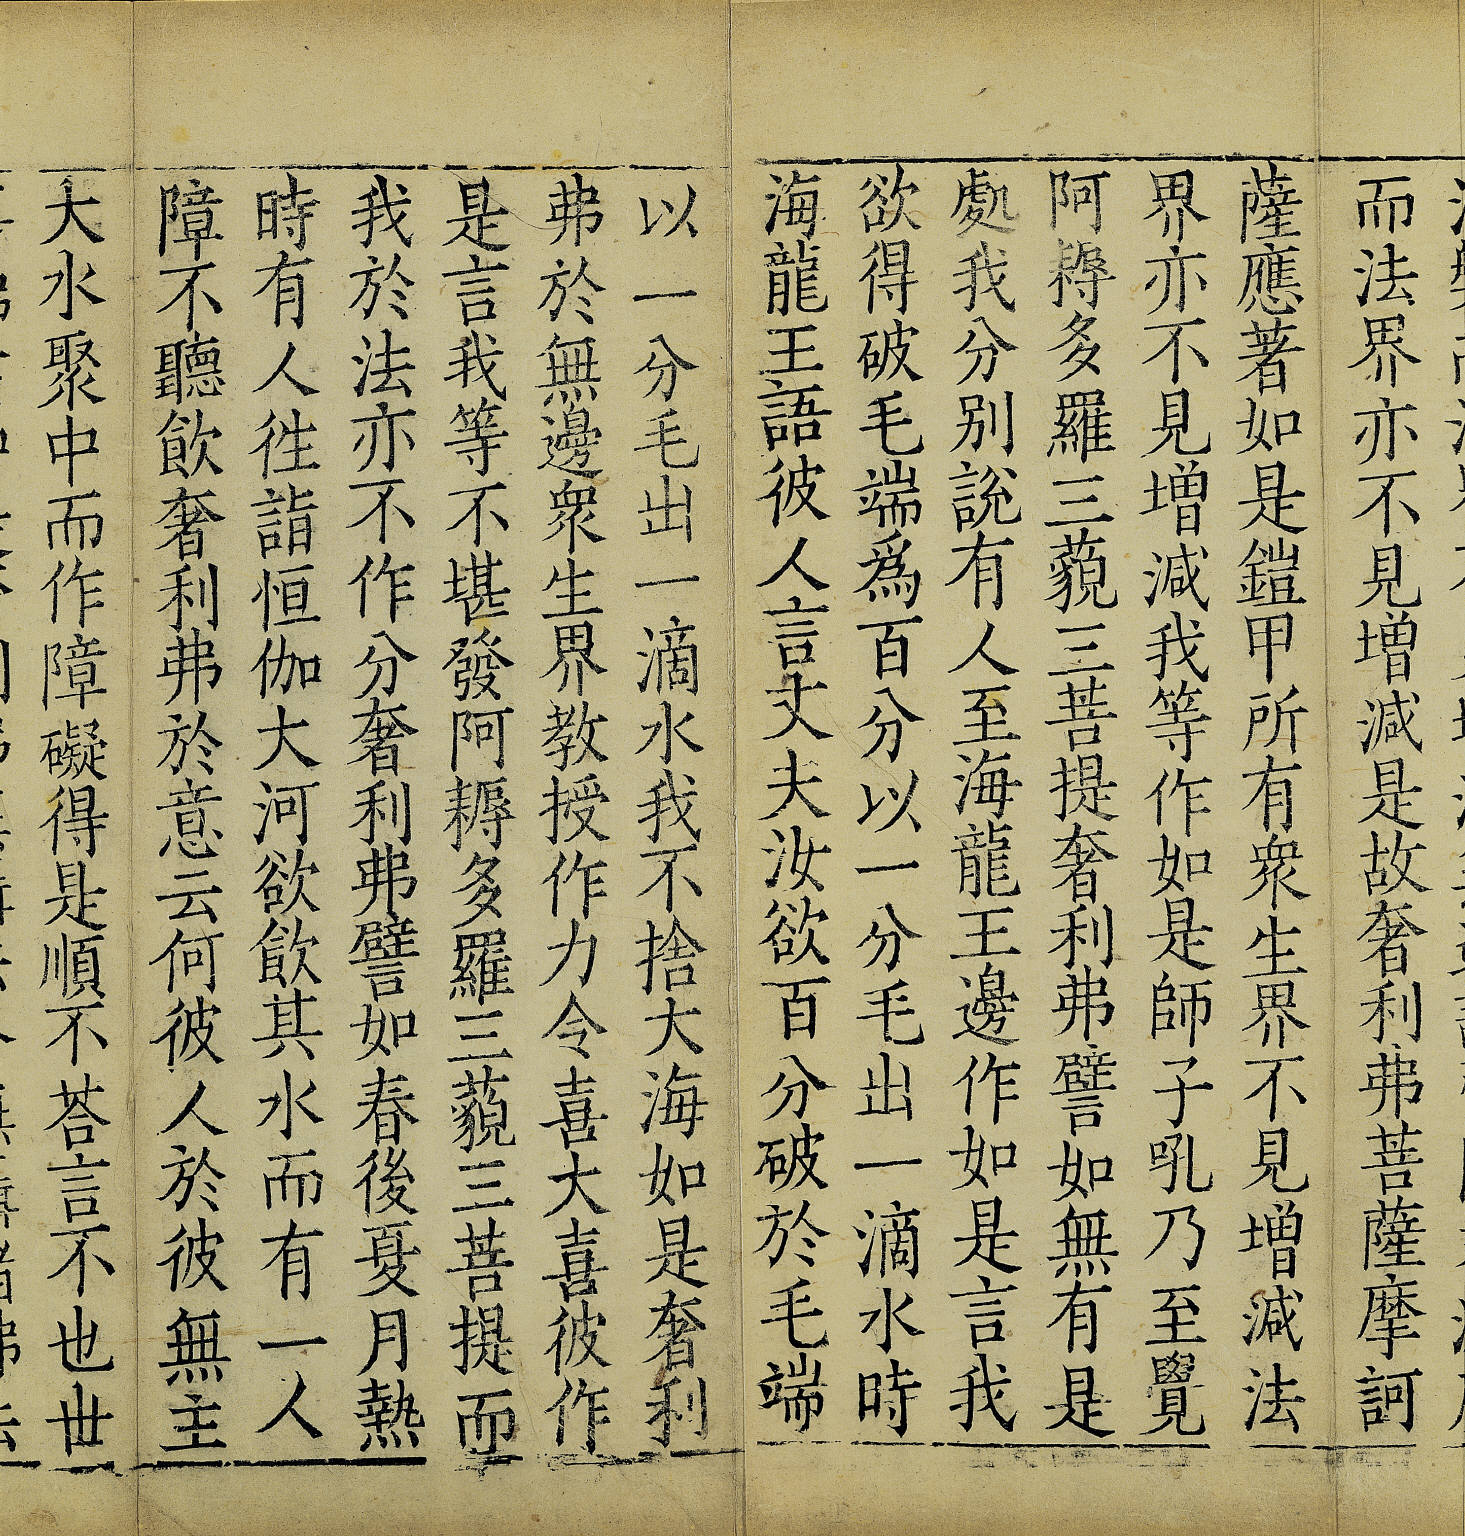 而法界亦不見增減是故奢利弗菩薩摩訶
薩應著如是鎧甲所有衆生界不見增減法
界亦不見增減我等作如是師子吼乃至覺
阿耨多羅三藐三菩提奢利弗譬如無有是
處我分别說有人至海龍王邊作如是言我
欲得破毛端爲百分以一分毛出一滴水時
海龍王語彼人言丈夫汝欲百分破於毛端
以一分毛出一滴水我不捨大海如是奢利
弗於無邊衆生界教授作力令喜大喜彼作
是言我等不堪發阿耨多羅三藐三菩提而
我於法亦不作分奢利弗譬如春後夏月熱
時有人徃詣恒伽大河欲飲其水而有一人
障不聽飲奢利弗於意云何彼人於彼無主
大水聚中而作障礙得是順不荅言不也世